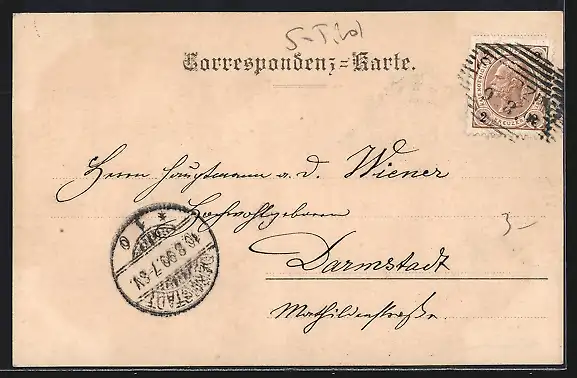 S-Tirol
Correspondenz=Karte.
2
KREUZER
Herrn Hauptmann a. d. Wiener
Hochwohlgeboren
3-
Darmstadt
Mathildenstraße
DARMSTADT
10.8.99.7-8V.
* 1 o